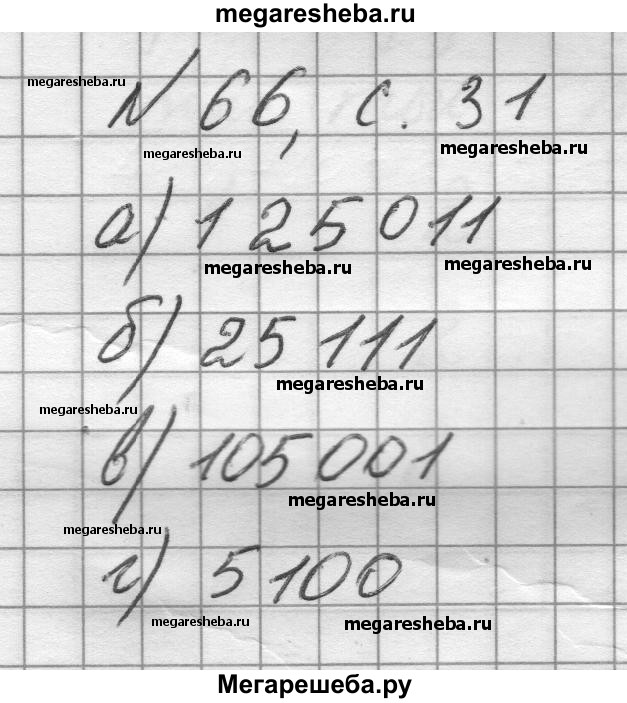 megaresheba.ru
megaresheba.ru
№ 66, с. 31
megaresheba.ru megaresheba.ru
а) 125 011
megaresheba.ru megaresheba.ru
б) 25 111
megaresheba.ru
megaresheba.ru
в) 105 001
megaresheba.ru
megaresheba.ru
г) 5 100
megaresheba.ru megaresheba.ru
Мегарешеба.ру